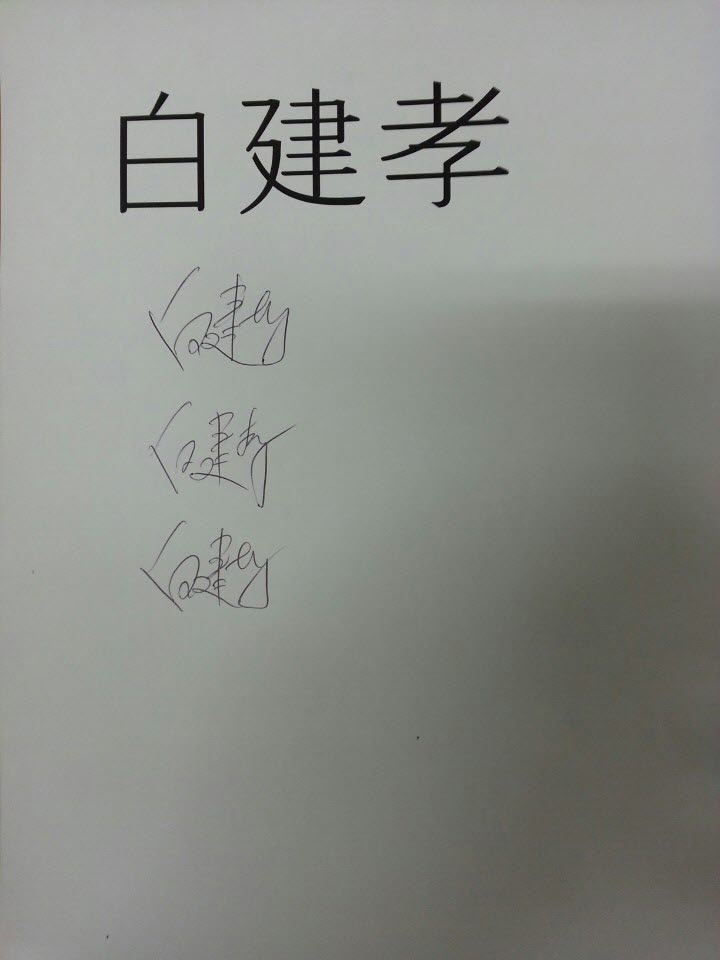 白建孝
白建孝
白建孝
白建孝